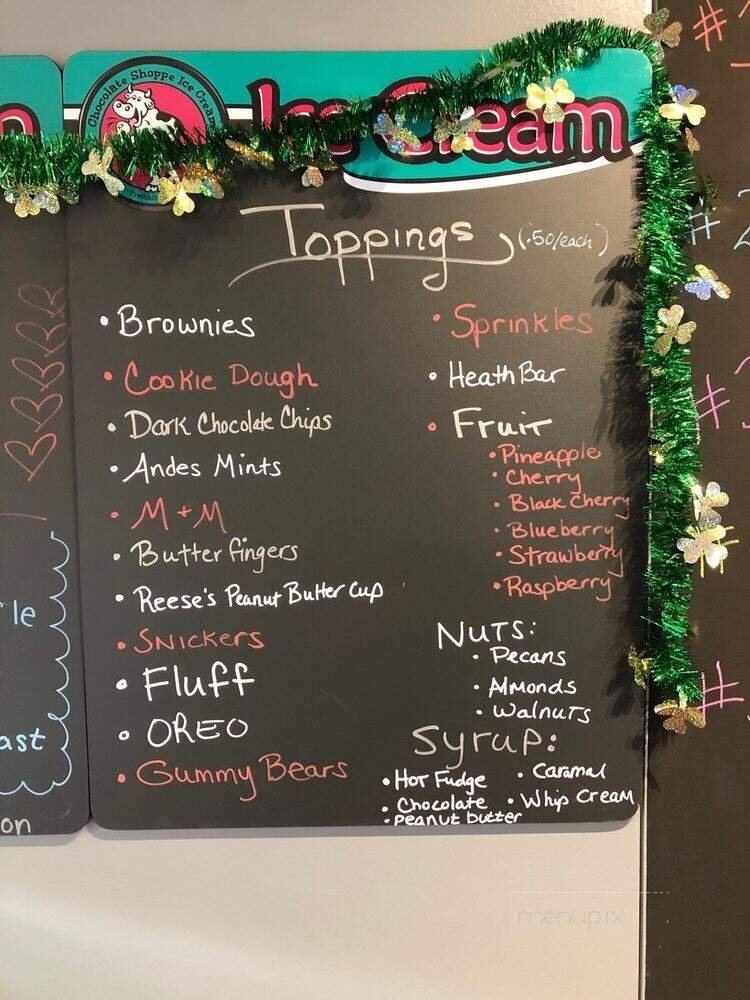 Chocolate Shoppe Ice Cream
Ice Cream
Toppings (.50/each)
• Brownies
• Cookie Dough
• Dark Chocolate Chips
• Andes Mints
• M + M
• Butterfingers
• Reese's Peanut Butter Cup
• Snickers
• Fluff
• OREO
• Gummy Bears
• Sprinkles
• Heath Bar
• Fruit
• Pineapple
• Cherry
• Black Cherry
• Blueberry
• Strawberry
• Raspberry
Nuts:
• Pecans
• Almonds
• Walnuts
Syrup:
• Hot Fudge
• Caramal
• Chocolate
• Whip Cream
• Peanut butter
le
ast
on
#
#
#
#
menupix